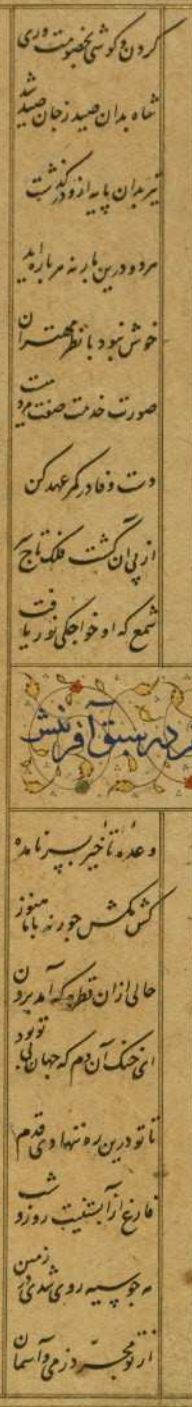 گردن و گوشی ز خصومت بری
شاه بدان صید ز جان صید شد
تیر بدان پایه ازو درگذشت
مرد درین بارنه مرباراید
خوش نبود با نظر مهتران
صورت خدمت صفت مردمیست
دست وفا در کمر عهد کن
از پی آن گشت فلک تاج
شمع که او خواجگی نور یافت
در سبق آفرینش
وعده تأخیر بسر نامده
کش مکش جور نه با ما هنوز
حالی از ان قطره که آمد برون
ای خنک آن دم که جهان بی تو بود
تا تو درین ره ننهادی قدم
فارغ از آبستنیت روز و شب
مه چو سیه روی شدی در زمین
از تو مجرد زمی و آسمان